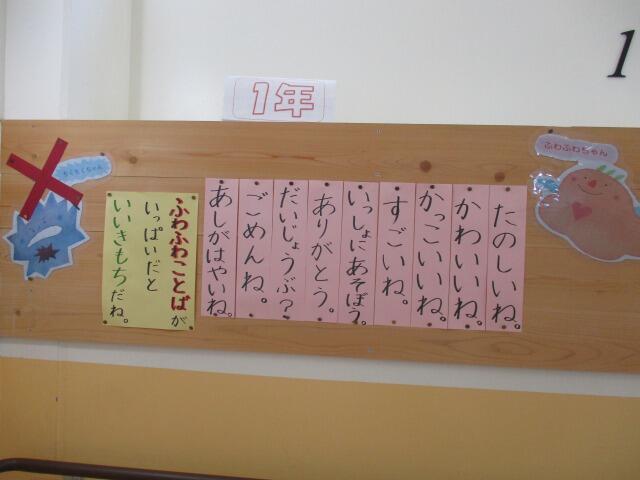 1年
1
ふわふわちゃん
たのしいね。
かわいいね。
かっこいいね。
すごいね。
いっしょにあそぼう。
ありがとう。
だいじょうぶ?
ごめんね。
あしがはやいね。
ふわふわことばが
いっぱいだと
いいきもちだね。
ちくちくちゃん